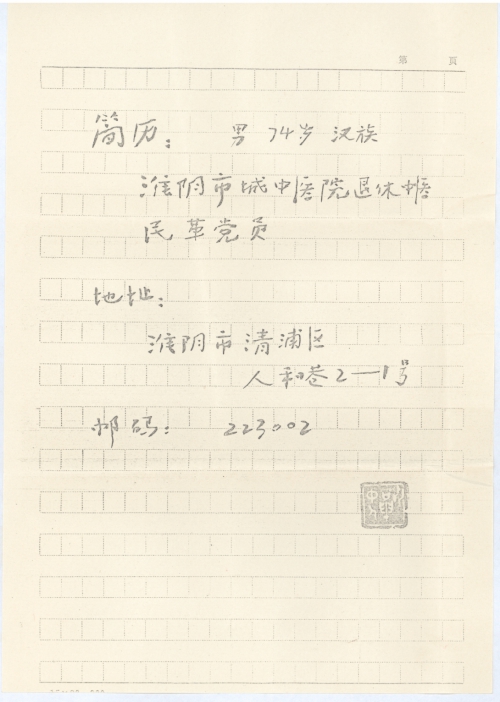 第 頁
简历： 男 74岁 汉族
淮阴市城中医院退休中医
民革党员
地址：
淮阴市清浦区
人和巷2—1号
邮码： 223002